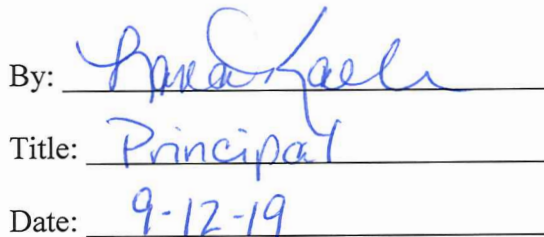 By:
Title: Principal
Date: 9-12-19